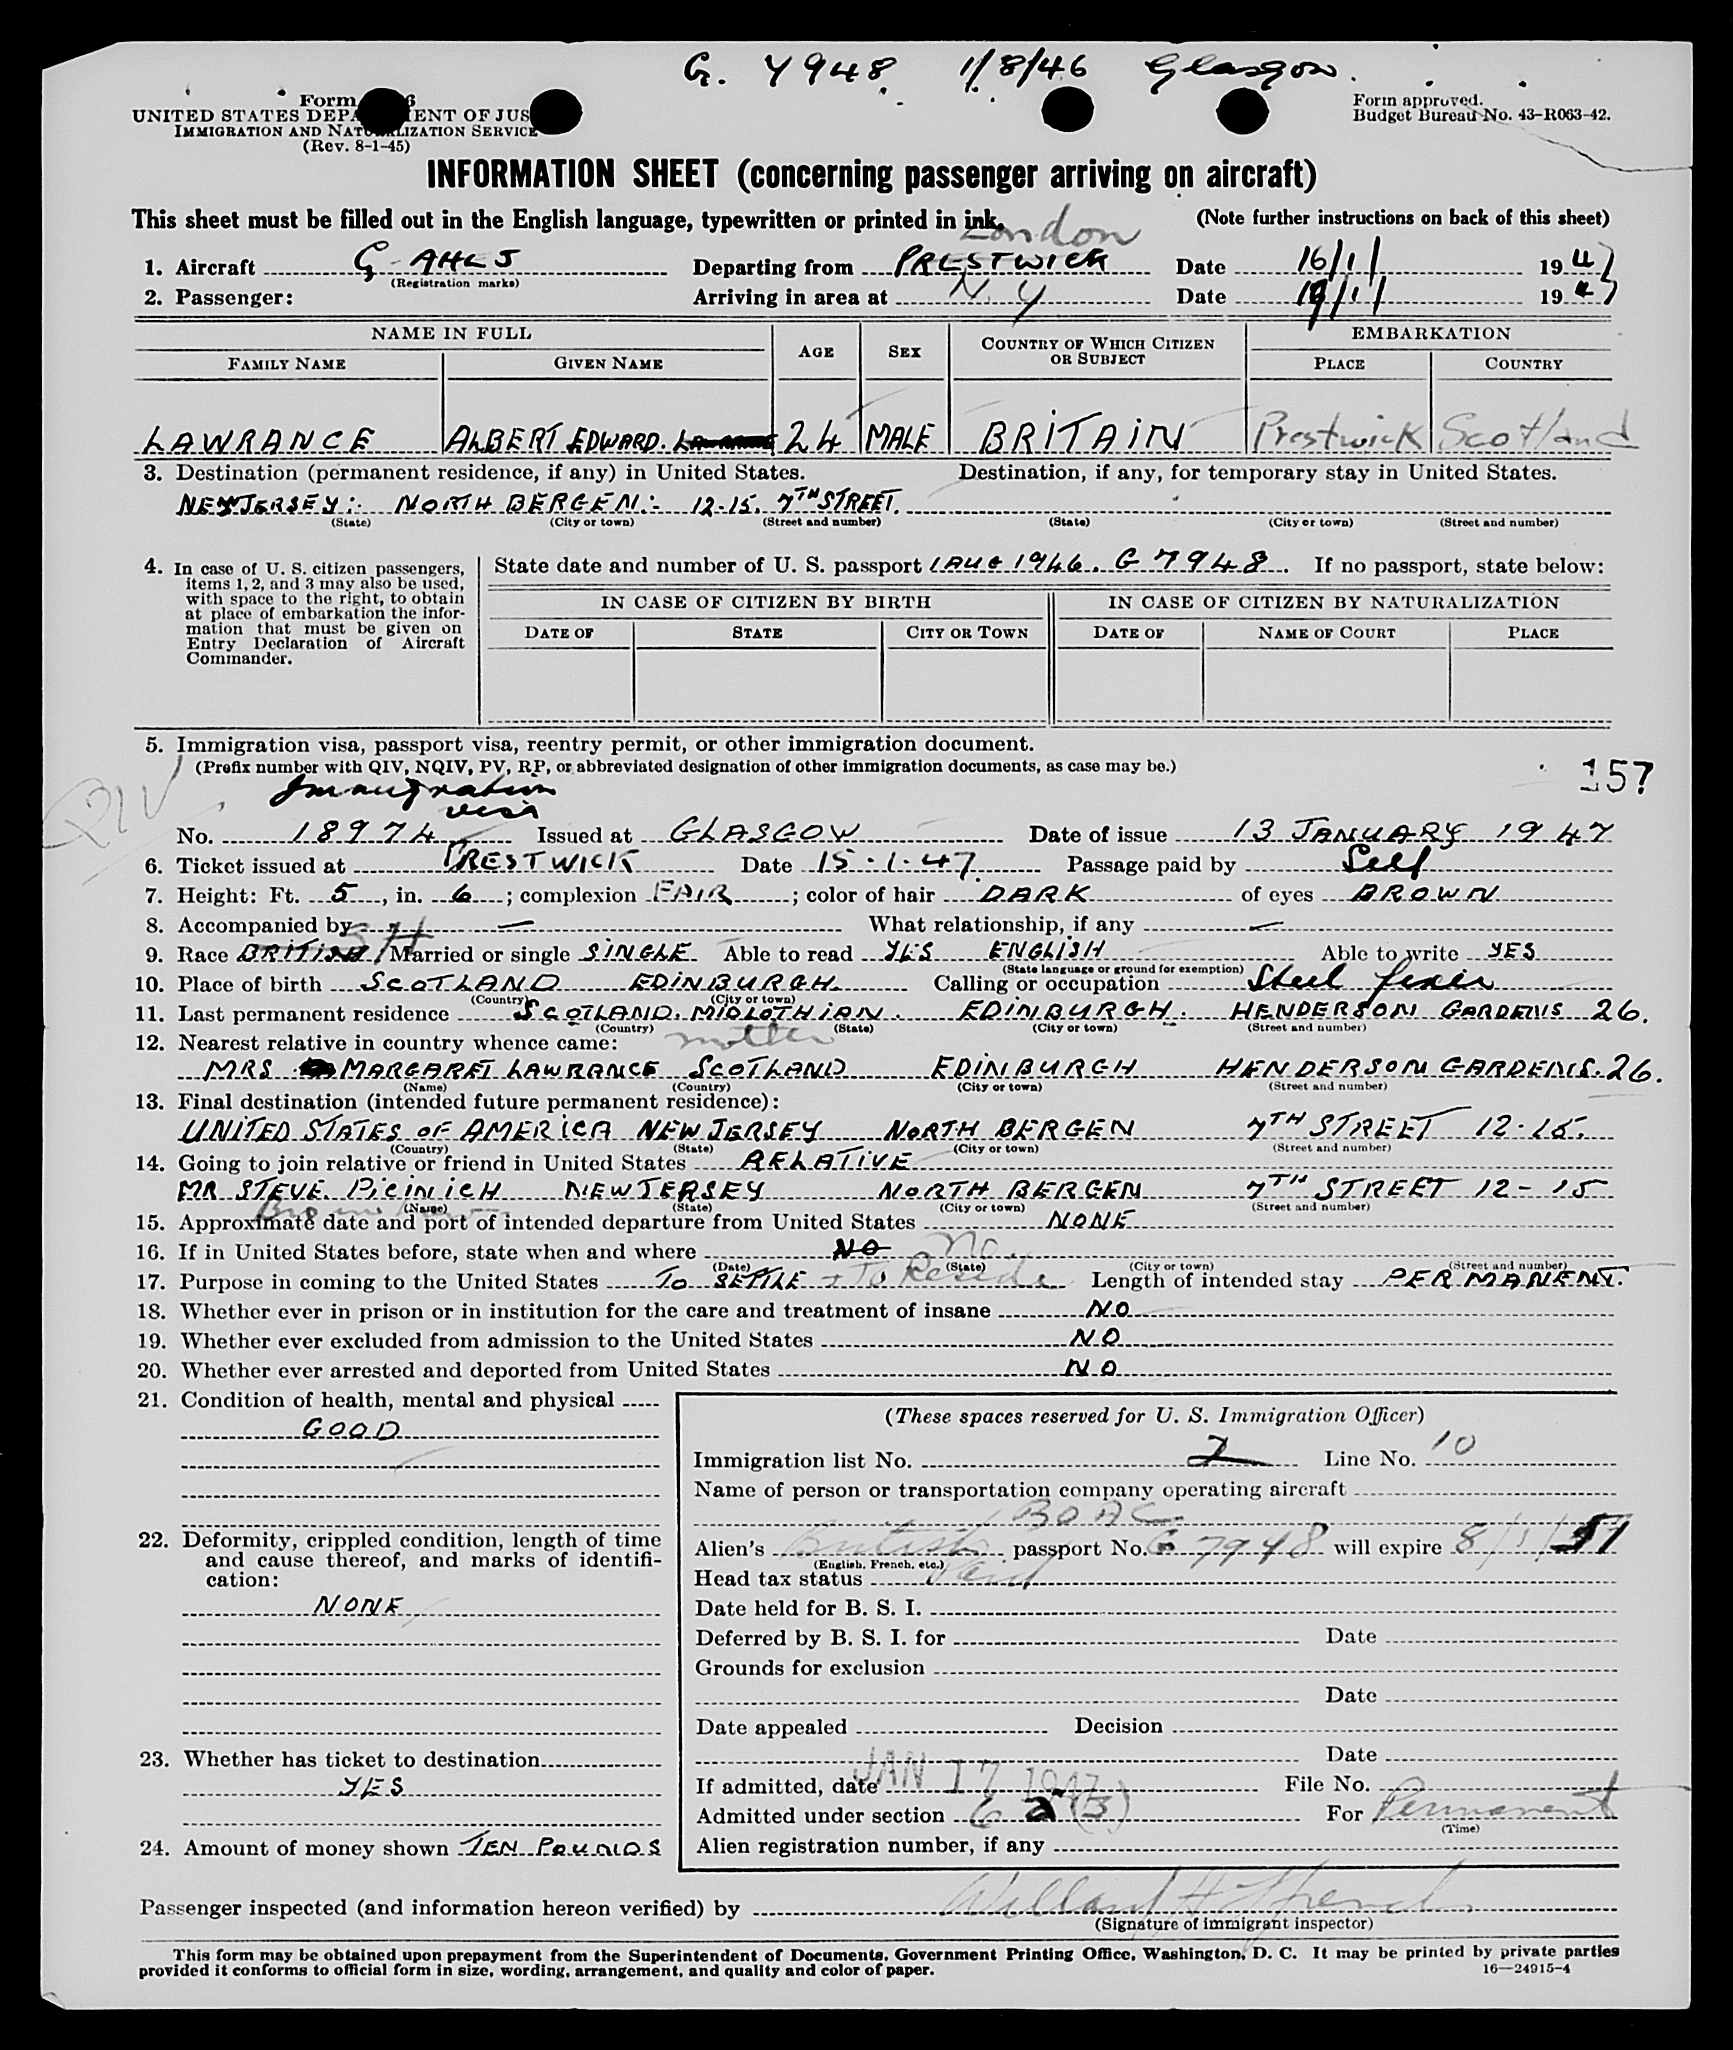 G. 7948 1/8/46 Glasgow.
Form
UNITED STATES DEPARTMENT OF JUS
IMMIGRATION AND NATURALIZATION SERVICE
(Rev. 8-1-45)
Form approved.
Budget Bureau No. 43-R063-42.
INFORMATION SHEET (concerning passenger arriving on aircraft)
This sheet must be filled out in the English language, typewritten or printed in ink. (Note further instructions on back of this sheet)
London
1. Aircraft G-AHLJ Departing from PRESTWICK Date 16/1/ 1947
(Registration marks)
2. Passenger: Arriving in area at N. Y Date 1947
NAME IN FULL AGE SEX COUNTRY OF WHICH CITIZEN OR SUBJECT EMBARKATION
FAMILY NAME GIVEN NAME PLACE COUNTRY
LAWRANCE ALBERT EDWARD. 24 MALE BRITAIN Prestwick Scotland
3. Destination (permanent residence, if any) in United States. Destination, if any, for temporary stay in United States.
NEW JERSEY:- NORTH BERGEN:- 12-15. 7TH STREET.
(State) (City or town) (Street and number) (State) (City or town) (Street and number)
4. In case of U. S. citizen passengers, items 1, 2, and 3 may also be used, with space to the right, to obtain at place of embarkation the information that must be given on Entry Declaration of Aircraft Commander.
State date and number of U. S. passport 1 AUG 1946. G 7948. If no passport, state below:
IN CASE OF CITIZEN BY BIRTH IN CASE OF CITIZEN BY NATURALIZATION
DATE OF STATE CITY OR TOWN DATE OF NAME OF COURT PLACE
5. Immigration visa, passport visa, reentry permit, or other immigration document.
(Prefix number with QIV, NQIV, PV, RP, or abbreviated designation of other immigration documents, as case may be.)
157
QIV
Immigration
visa
No. 18974 Issued at GLASGOW Date of issue 13 JANUARY 1947
6. Ticket issued at PRESTWICK Date 15.1.47. Passage paid by Self
7. Height: Ft. 5, in. 6; complexion FAIR; color of hair DARK of eyes BROWN
8. Accompanied by — What relationship, if any —
9. Race BRITISH Married or single SINGLE Able to read YES ENGLISH Able to write YES
(State language or ground for exemption)
10. Place of birth SCOTLAND EDINBURGH Calling or occupation Steel fixer
(Country) (City or town)
11. Last permanent residence SCOTLAND. MIDLOTHIAN. EDINBURGH. HENDERSON GARDENS 26.
(Country) (State) (City or town) (Street and number)
12. Nearest relative in country whence came: mother
MRS MARGARET LAWRANCE SCOTLAND EDINBURGH HENDERSON GARDENS. 26.
(Name) (Country) (City or town) (Street and number)
13. Final destination (intended future permanent residence):
UNITED STATES OF AMERICA NEW JERSEY NORTH BERGEN 7TH STREET 12-15.
(Country) (State) (City or town) (Street and number)
14. Going to join relative or friend in United States RELATIVE
MR STEVE. PICINICH NEW JERSEY NORTH BERGEN 7TH STREET 12-15
(Name) (State) (City or town) (Street and number)
15. Approximate date and port of intended departure from United States NONE
16. If in United States before, state when and where NO No.
(Date) (State) (City or town) (Street and number)
17. Purpose in coming to the United States TO SETTLE + To Reside Length of intended stay PERMANENT.
18. Whether ever in prison or in institution for the care and treatment of insane NO
19. Whether ever excluded from admission to the United States NO
20. Whether ever arrested and deported from United States NO
21. Condition of health, mental and physical
GOOD
22. Deformity, crippled condition, length of time and cause thereof, and marks of identification:
NONE
23. Whether has ticket to destination
YES
24. Amount of money shown TEN POUNDS
(These spaces reserved for U. S. Immigration Officer)
Immigration list No. 2 Line No. 10
Name of person or transportation company operating aircraft
BOAC
Alien's British passport No. G 7948 will expire 8/1/51
(English, French, etc.)
Head tax status Paid
Date held for B. S. I.
Deferred by B. S. I. for Date
Grounds for exclusion
Date
Date appealed Decision
Date
If admitted, date JAN 17 1947 File No.
Admitted under section 6 a (3) For Permanent
(Time)
Alien registration number, if any
Passenger inspected (and information hereon verified) by Willard H
(Signature of immigrant inspector)
This form may be obtained upon prepayment from the Superintendent of Documents, Government Printing Office, Washington, D. C. It may be printed by private parties
provided it conforms to official form in size, wording, arrangement, and quality and color of paper.
16—24915-4